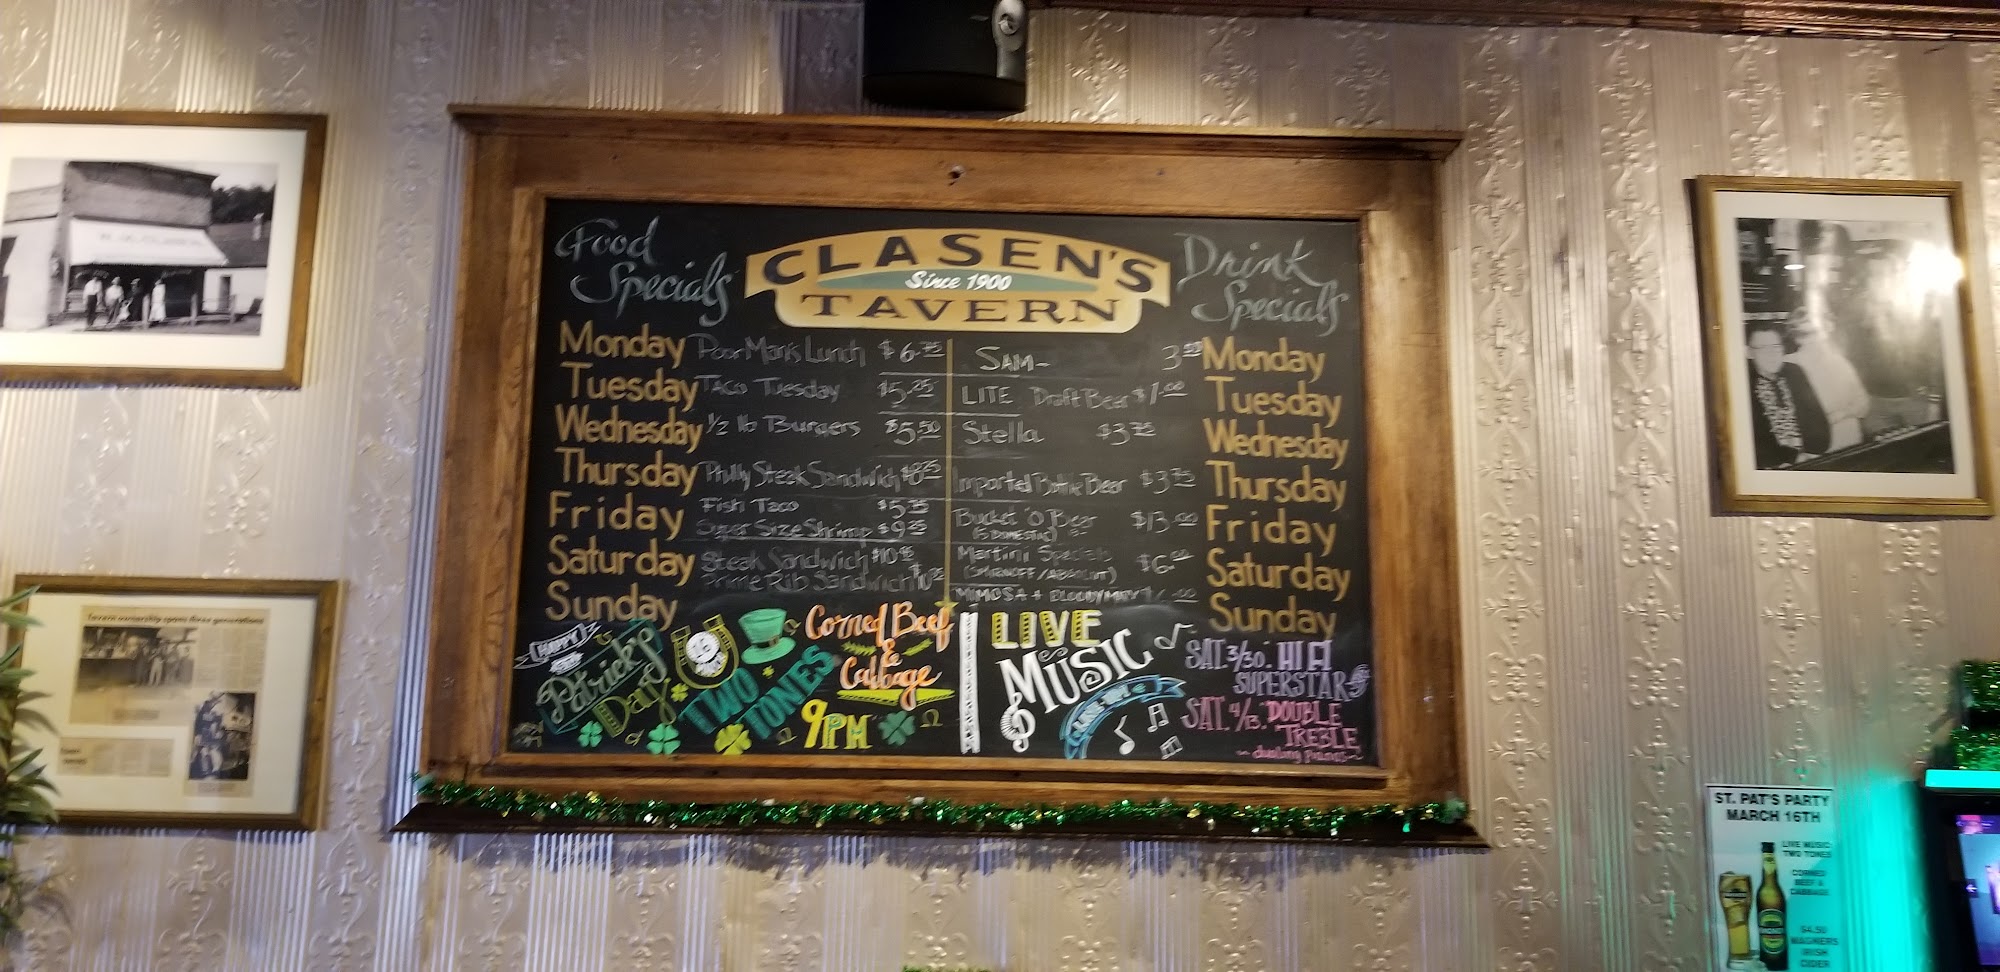 Food
Specials
CLASEN'S
Since 1900
TAVERN
Drink
Specials
Monday Poor Man's Lunch $6.75
Tuesday Taco Tuesday $5.25
Wednesday 1/2 lb Burgers $5.50
Thursday Philly Steak Sandwich
Friday Fish Taco
Super Size Shrimp $9.25
Saturday Steak Sandwich
Prime Rib Sandwich
Sunday
SAM- 3.00 Monday
LITE Draft Beer $1.00 Tuesday
Stella $3.75 Wednesday
Imported Bottle Beer $3.75 Thursday
Bucket 'O Beer $13.00 Friday
(5 DOMESTIC)
Martini Specials $6.00 Saturday
(SMIRNOFF/ABSOLUT)
MIMOSA + BLOODY MARY Sunday
HAPPY
ST.
Patrick's
Day
16
TWO
TONES
Corned Beef
&
Cabbage
9PM
LIVE
MUSIC
SAT. 3/30: HI FI
SUPERSTAR
SAT. 4/13: DOUBLE
TREBLE
~dueling pianos~
Tavern ownership spans three generations
ST. PAT'S PARTY
MARCH 16TH
LIVE MUSIC
TWO TONES
CORNED
BEEF &
CABBAGE
$4.50
MAGNERS
IRISH
CIDER